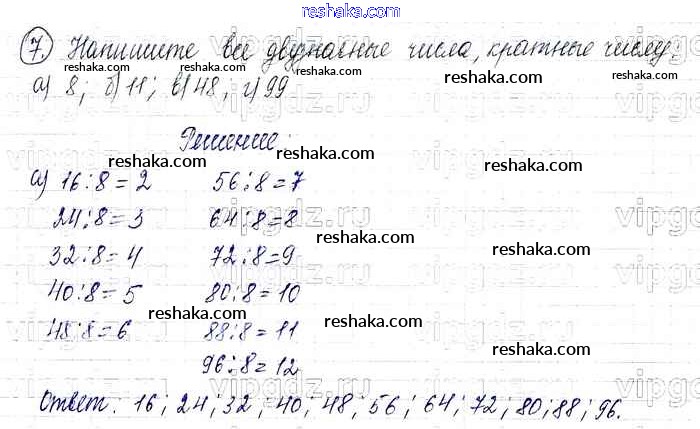 reshaka.com
reshaka.com
7 Напишите все двузначные числа, кратные числу:
reshaka.com reshaka.com reshaka.com
а) 8; б) 11; в) 48, г) 99
Решение:
reshaka.com reshaka.com
а) 16:8=2 56:8=7
reshaka.com
24:8=3 64:8=8
reshaka.com
32:8=4 72:8=9
reshaka.com
40:8=5 80:8=10
reshaka.com reshaka.com
48:8=6 88:8=11
reshaka.com
96:8=12
reshaka.com
Ответ: 16; 24; 32; 40; 48; 56; 64; 72; 80; 88; 96.
reshaka.com
vipgdz.ru